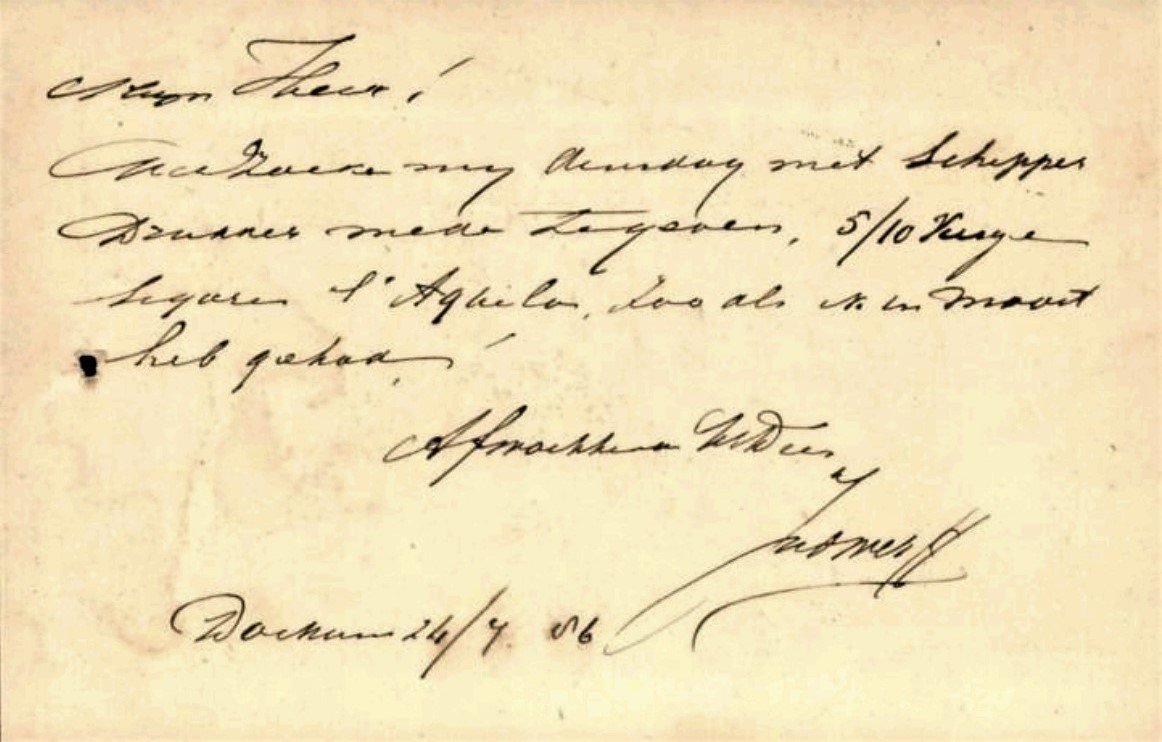 Mijn Heer!
Verzoeke my dinsdag met Schipper
Drukker mede te geven, 5/10
Sigaren l'Aquila, zoo als ik in maart
heb gehad!
Afwachtend UEd
Dockum 24/7 86